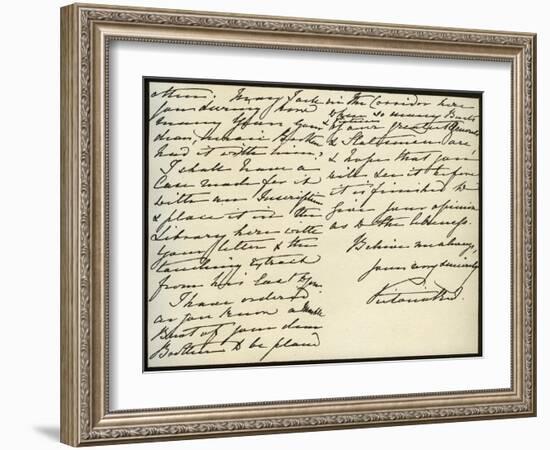 other. May I ask
you during how
many years your
dear, heroic Brother
had it with him?
I shall have a
Case made for it
with an Inscription
& place it in the
Library here with
your letter & the
touching Extract
from his last to you.
I have ordered
as you know a Marble
Bust of your dear
Brother to be placed
in the Corridor here
where so many Busts
& Pictures
of our greatest Generals
& Statesmen are,
& hope that you
will see it before
it is finished to
give your opinion
as to the likeness.
Believe me always,
yours very sincerely
Victoria R I